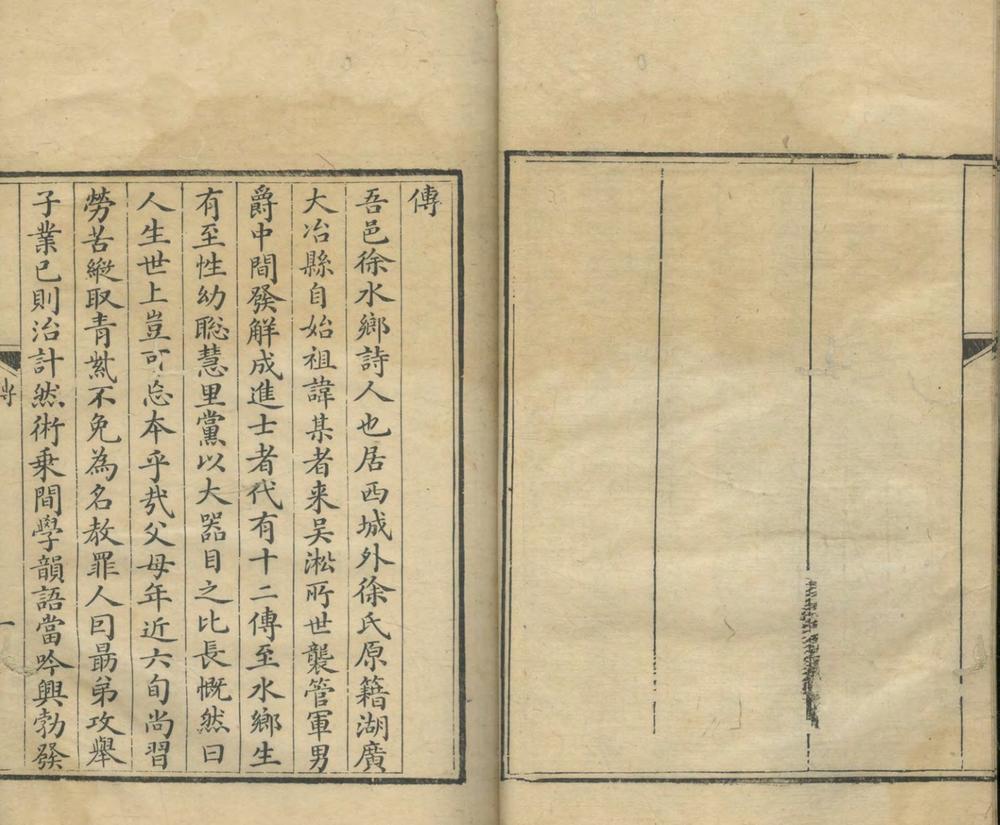 傳
吾邑徐水鄉詩人也居西城外徐氏原籍湖廣
大冶縣自始祖諱某者来吴淞所世襲管軍男
爵中間發解成進士者代有十二傳至水鄉生
有至性幼聡慧里黨以大器目之比長慨然曰
人生世上豈可忘本乎㢤父母年近六旬尚習
勞苦縱取青紫不免為名教罪人囙勗弟攻舉
子業已則治計然術乗間學韻語當吟興勃發
傳
一